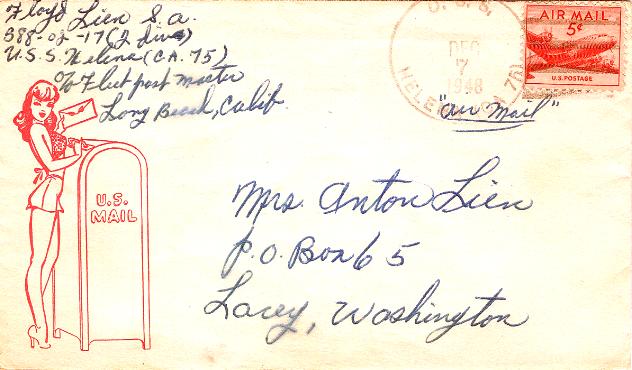 Floyd Lien S.a.
388-02-17 (2 div)
U.S.S. Helena (CA. 75)
c/o Fleet post master
Long Beach, Calif.
U.S.S.
DEC
7
1948
HELENA (CA 75)
AIR MAIL
5¢
U.S. POSTAGE
"air mail"
U.S.
MAIL
Mrs. Anton Lien
P.O. Box 65
Lacey, Washington